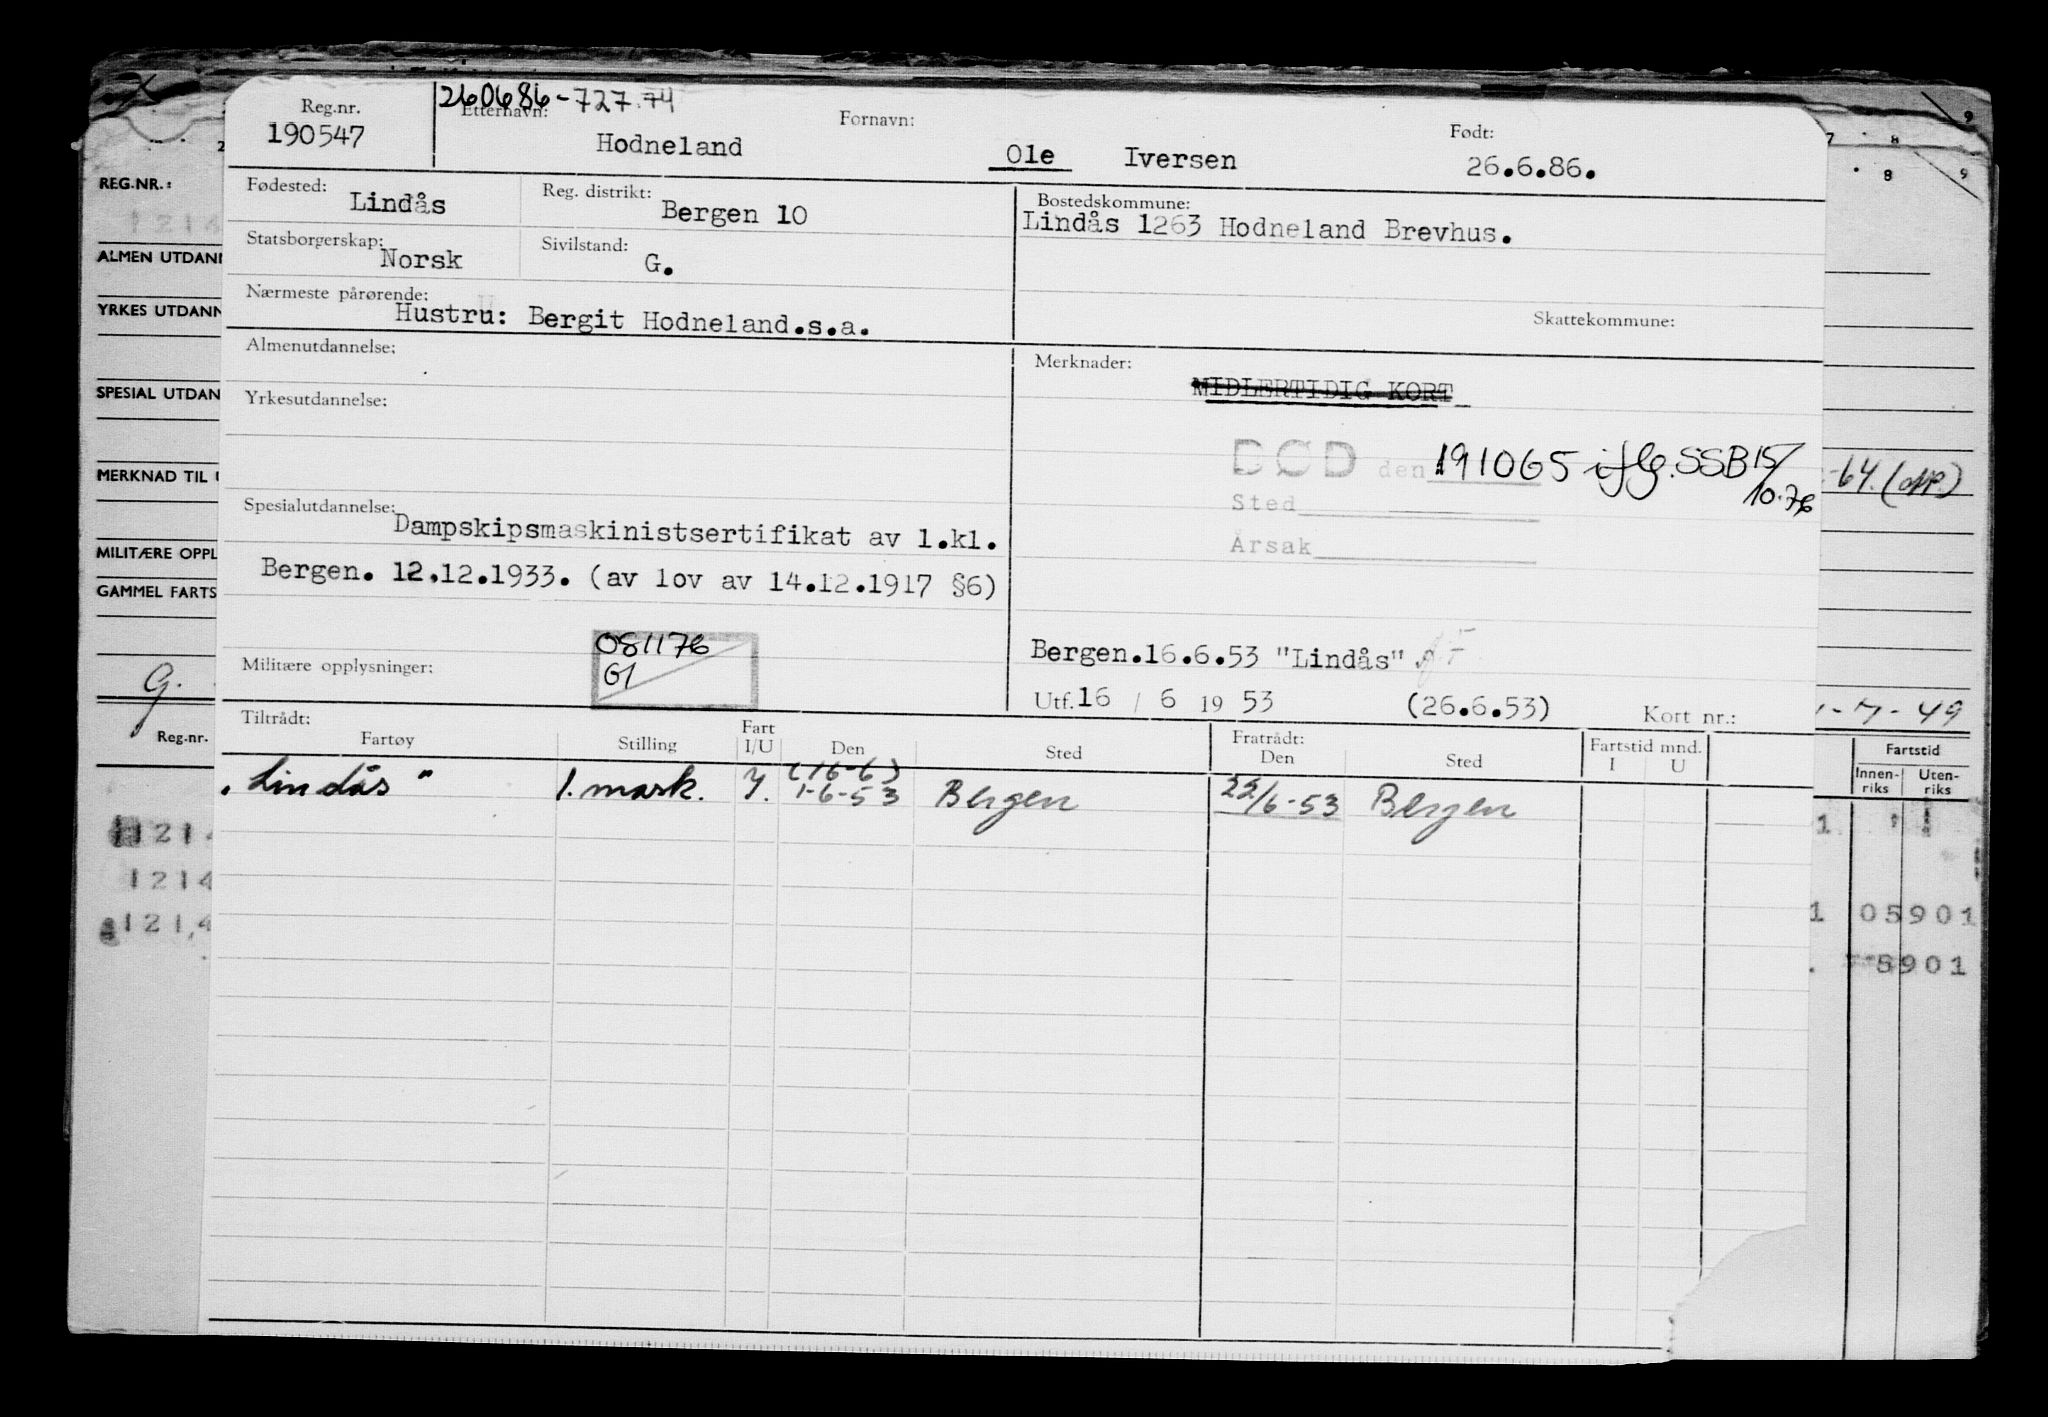 Reg.nr. 260686-727.74
Etternavn: Fornavn: Født:
190547 Hodneland Ole Iversen 26.6.86.
Fødested: Lindås Reg. distrikt: Bergen 10 Bostedskommune:
Lindås 1263 Hodneland Brevhus.
Statsborgerskap: Norsk Sivilstand: G.
Nærmeste pårørende:
Hustru: Bergit Hodneland.s.a. Skattekommune:
Almenutdannelse: Merknader:
MIDLERTIDIG KORT
Yrkesutdannelse:
DØD den 191065 iflg. SSB 15/
10.76
Sted
Årsak
Spesialutdannelse:
Dampskipsmaskinistsertifikat av 1.kl.
Bergen. 12.12.1933. (av lov av 14.12.1917 §6)
081176
G1
Militære opplysninger:
Bergen.16.6.53 "Lindås"
Utf. 16 / 6 19 53 (26.6.53) Kort nr.:
Tiltrådt: Fratrådt:
Fartøy Stilling Fart I/U Den Sted Den Sted Fartstid mnd. I U
(16-6)
"Lindås" 1. mask. I. 1-6-53 Bergen 22/6-53 Bergen
REG.NR.:
1214
ALMEN UTDANN
YRKES UTDANN
SPESIAL UTDAN
MERKNAD TIL U
MILITÆRE OPPL
GAMMEL FARTS
G.
Reg.nr.
1214
1214
121,4
7 8
9
8 9
-64.
-7-49
Fartstid
Innen-riks Uten-riks
1
1 05901
5901